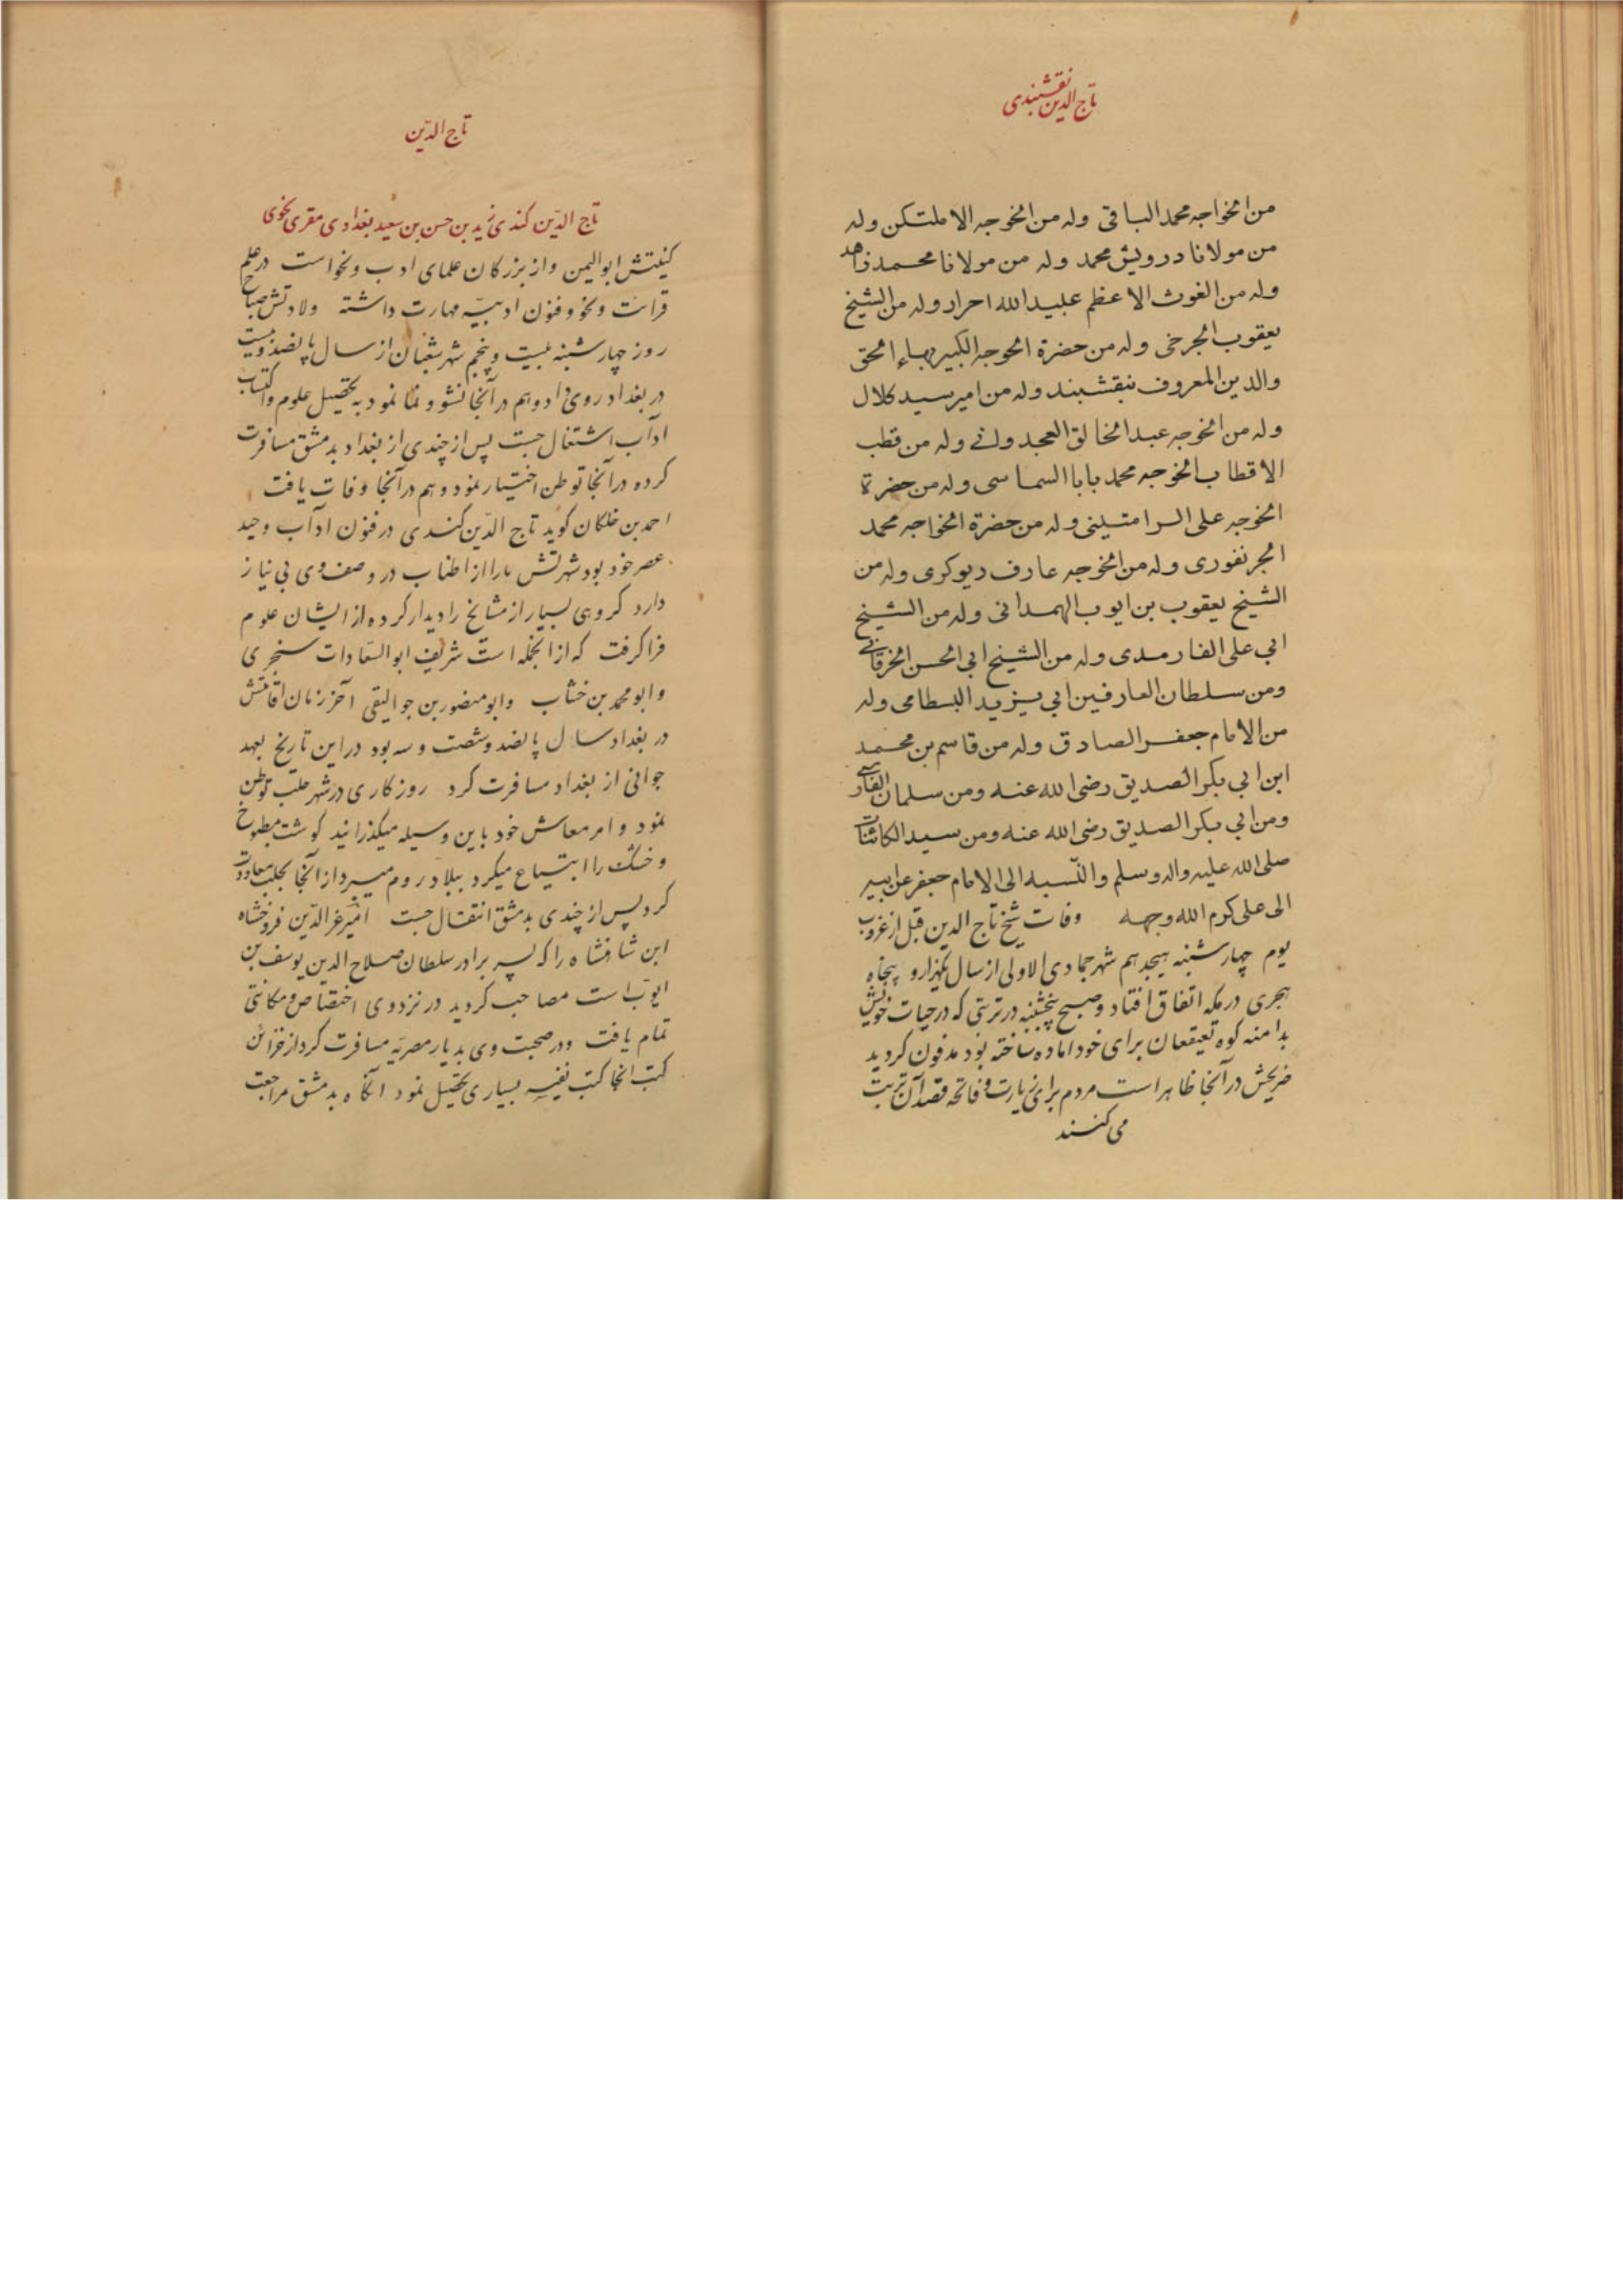 تاج الدین نقشبندی
من الخواجه محمد الباقی وله من الخوجه الاملتکن وله
من مولانا درویش محمد وله من مولانا محمد زاهد
وله من الغوث الاعظم عبید الله احرار وله من الشیخ
یعقوب الجرخی وله من حضرة الخوجه الکبیر بهاء الحق
والدین المعروف بنقشبند وله من امیر سید کلال
وله من الخوجه عبد الخالق العجدوانے وله من قطب
الاقطاب الخوجه محمد بابا السماسی وله من حضرة
الخوجه علی الرامتینی وله من حضرة الخواجه محمد
انجر نفوری وله من الخوجه عارف دیوکری وله من
الشیخ یعقوب بن ایوب الهمدانی وله من الشیخ
ابی علی الفارمدی وله من الشیخ ابی الحسن الخرقانے
ومن سلطان العارفین ابی یزید البسطامی وله
من الامام جعفر الصادق وله من قاسم بن محمد
ابن ابی بکر الصدیق رضی الله عنه ومن سلمان الفارسے
ومن ابی بکر الصدیق رضی الله عنه ومن سید الکائنات
صلی الله علیه واله وسلم والنّسبه الی الامام جعفر عن ابیه
الی علی کرم الله وجهه وفات شیخ تاج الدین قبل از غروب
یوم چهارشنبه هیجدهم شهر جمادی الاولی از سال یکهزار و پنجاه
هجری در مکه اتفاق افتاد و صبح پنجشنبه در تربتی که در حیات خویش
بدامنه کوه تعیقعان برای خود اماده ساخته بود مدفون کردید
ضریحش در آنجا ظاهر است مردم برای زیارت و فاتحه قصد آن تربت
می کنند
تاج الدّین
تاج الدّین کندی زید بن حسن بن سعید بغدادی مقری نحوی
کنیتش ابو الیمن و از بزرکان علمای ادب و نحو است در علم
قرائت و نحو و فنون ادبیّه مهارت داشته ولادتش صباح
روز چهارشنبه بیست و پنجم شهر شعبان از سال پانصد و بیست
در بغداد روی داد و هم در آنجا نشو و نما نمود به تحصیل علوم و اکتساب
ادآب اشتغال جست پس از چندی از بغداد بدمشق مسافرت
کرده در آنجا توطن اختیار نمود و هم در آنجا وفات یافت
احمد بن خلکان کوید تاج الدّین کندی در فنون ادآب وحید
عصر خود بود شهرتش مارا از اطناب در وصف وی بی نیاز
دارد کروهی بسیار از مشایخ را دیدار کرده از ایشان علوم
فرا کرفت که از انجمله است شریف ابو السّعادات سنجری
و ابو محمد بن خشاب و ابو منصور بن جوالیقی آخر زمان اقامتش
در بغداد سال پانصد و شصت و سه بود در این تاریخ بعهد
جوانی از بغداد مسافرت کرد روزکاری در شهر حلب توطن
نمود و امر معاش خود باین وسیله میکذرانید کوشت مطبوخ
و خشک را ابتیاع میکرد ببلاد روم میبرد از آنجا بحلب معاودت
کرد پس از چندی بدمشق انتقال جست امیر عز الدّین فروخشاه
ابن شاهنشاه را که پسر برادر سلطان صلاح الدین یوسف بن
ایوّب است مصاحب کردید در نزد وی اختصاص و مکانتی
تمام یافت و در صحبت وی بدیار مصریّه مسافرت کرد از خزائن
کتب انجا کتب نفیسه بسیاری تحصیل نمود انکاه بدمشق مراجعت